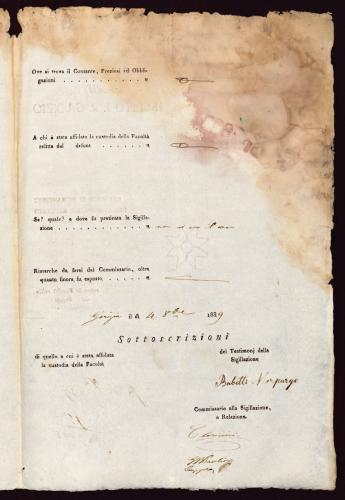 Ove si trova il Contante, Preziosi ed Obbli-
gazioni . . . . . . . . . . . . . "
A chi è stata affidata la custodia della Facoltà
relitta dal defonto . . . . . . . . . . "
Se? quale? a dove fu praticata la Sigilla-
zione . . . . . . . . . . . . . "
Rimarche da farsi dal Commissario, oltre
quanto finora fu esposto . . . . . . . "
li 4. 8bre 1839
Sottoscrizioni
di quello a cui è stata affidata
la custodia della Facoltà
dei Testimonj della
Sigillazione
Babette Morpurgo
Commissario alla Sigillazione,
e Relazione.